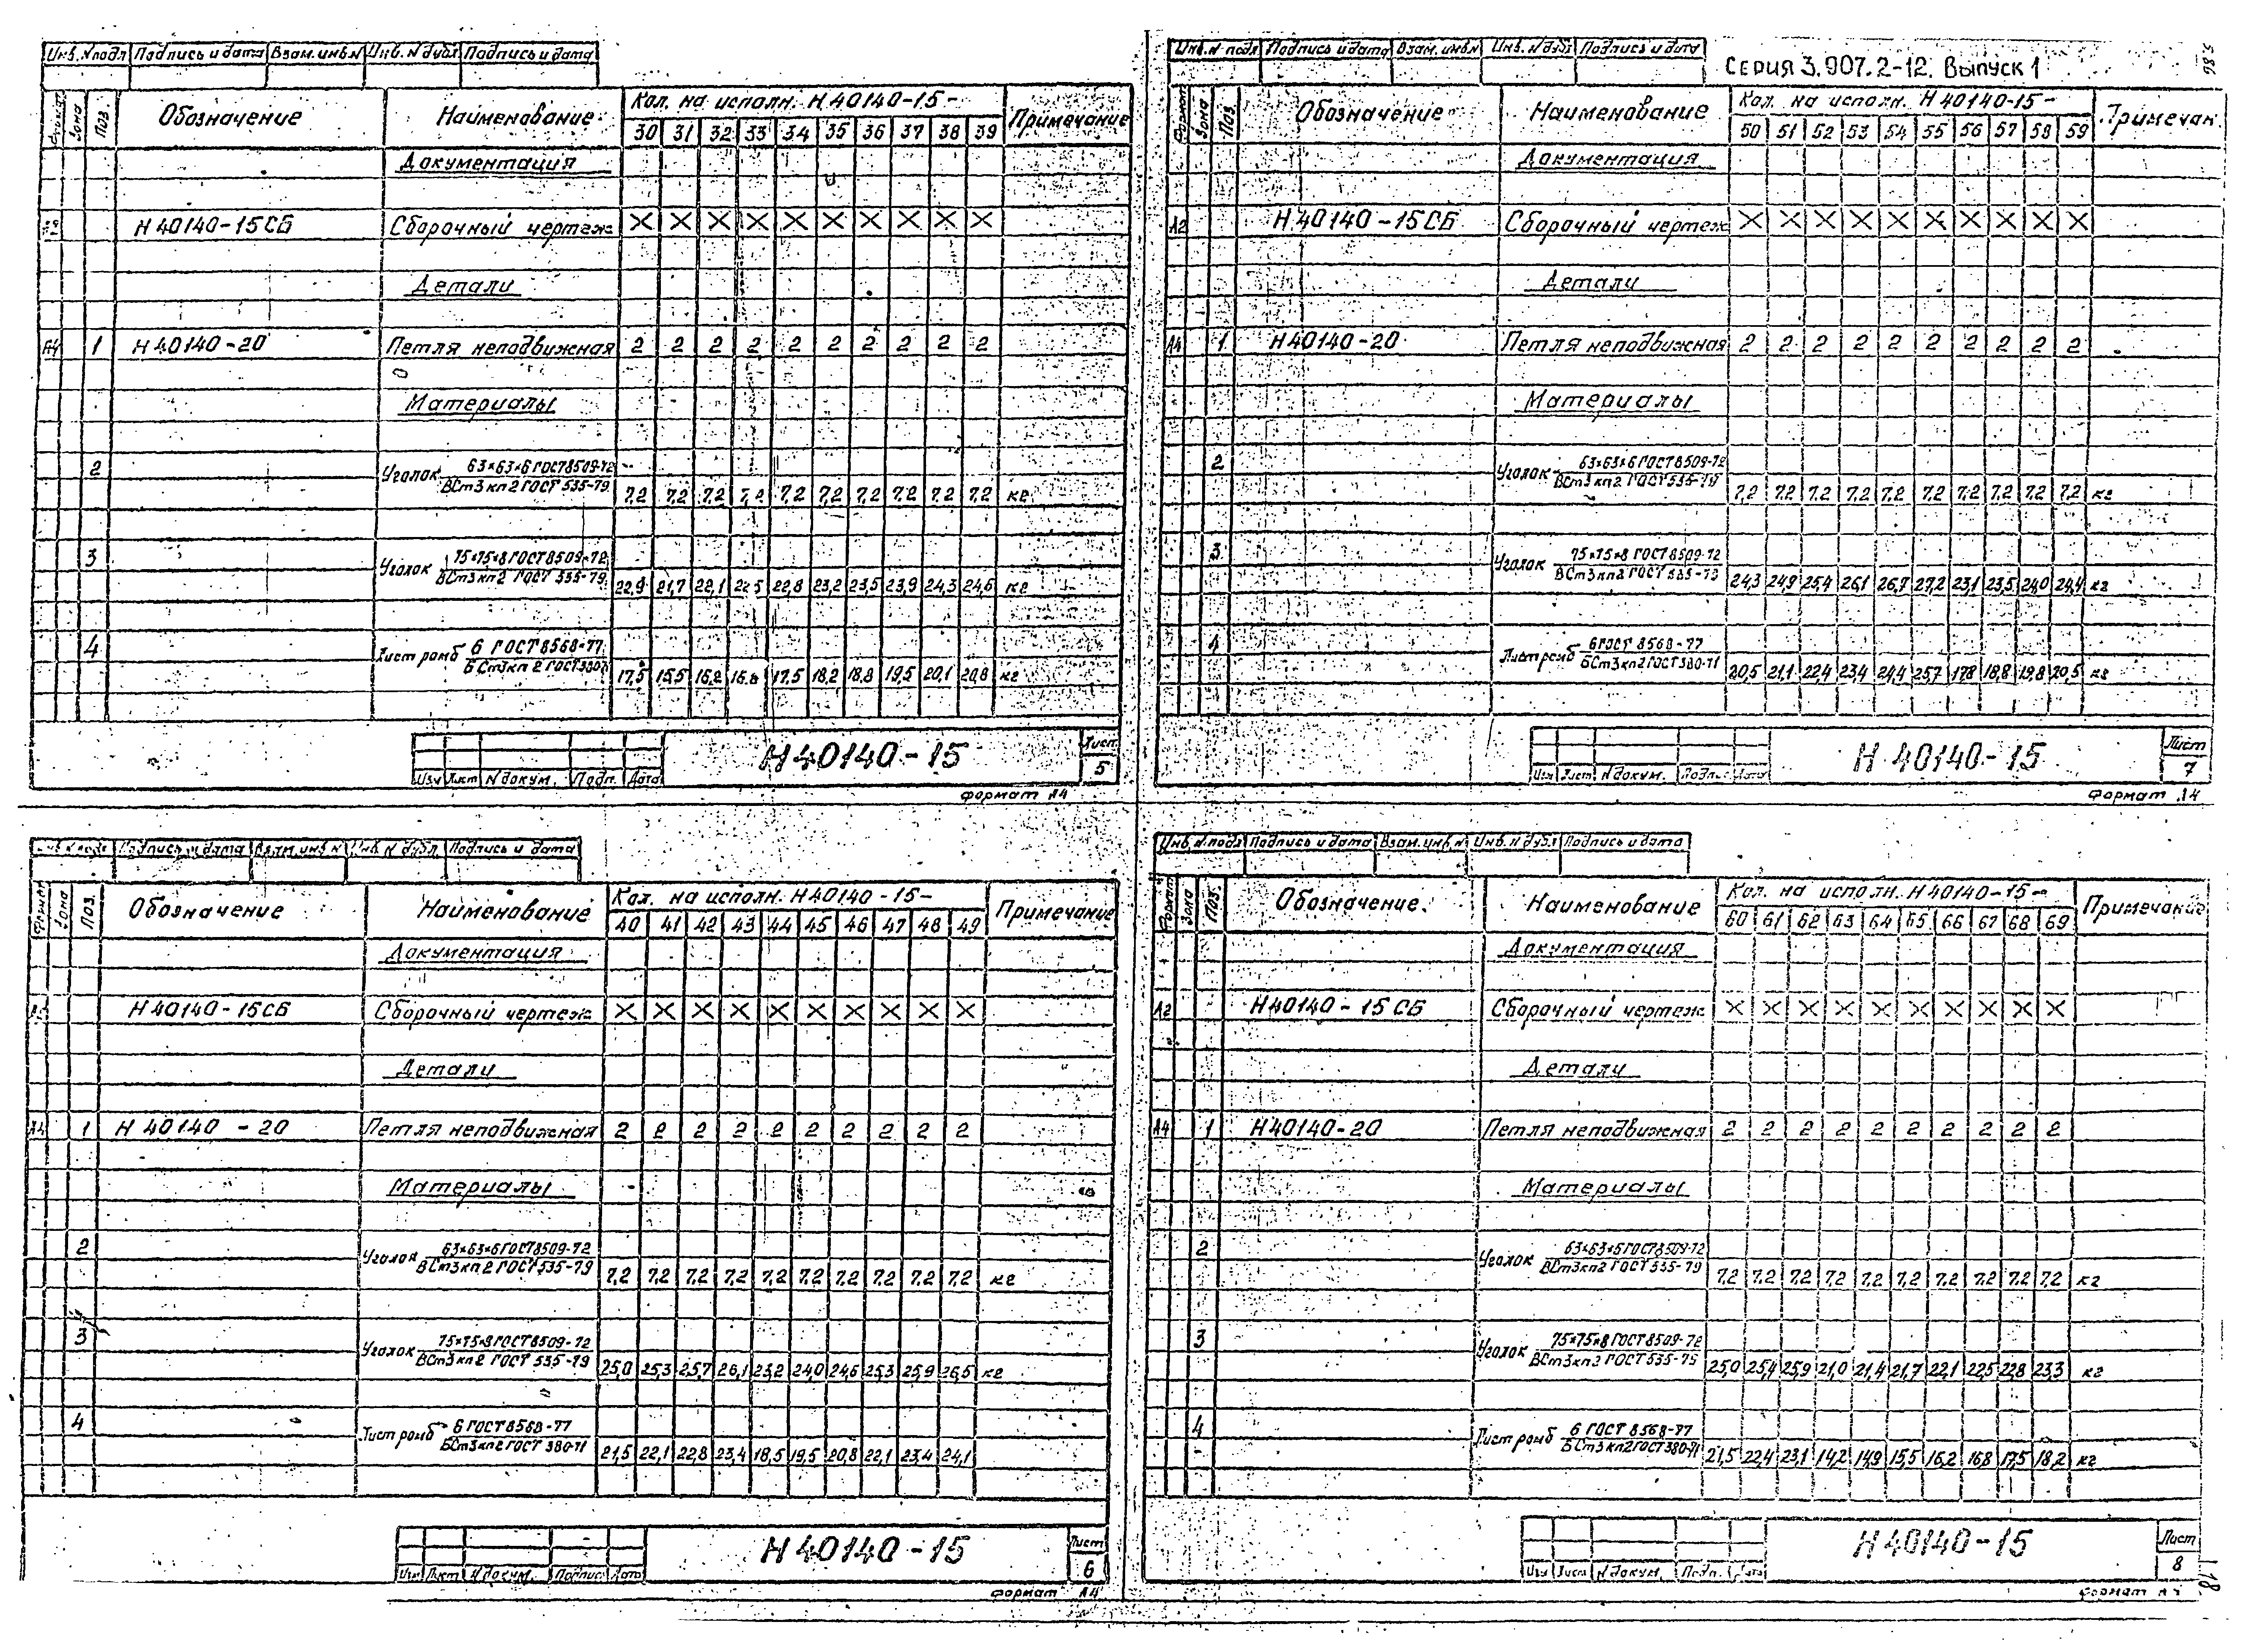 Инв. N подл Подпись и дата Взам. инв. N Инв. N дубл Подпись и дата
Формат Зона Поз. Обозначение Наименование Кол. на исполн. Н40140-15- Примечание
30 31 32 33 34 35 36 37 38 39
Документация
Н40140-15СБ Сборочный чертеж X X X X X X X X X X
Детали
А4 1 Н40140-20 Петля неподвижная 2 2 2 2 2 2 2 2 2 2
Материалы
2 Уголок 63×63×6 ГОСТ 8509-72
ВСт3кп2 ГОСТ 535-79 7,2 7,2 7,2 7,2 7,2 7,2 7,2 7,2 7,2 7,2 кг
3 Уголок 75×75×8 ГОСТ 8509-72
ВСт3кп2 ГОСТ 535-79 22,9 21,7 22,1 22,5 22,8 23,2 23,5 23,9 24,3 24,6 кг
4 Лист ромб 6 ГОСТ 8568-77
БСт3кп2 ГОСТ 380-71 17,5 15,5 16,2 16,8 17,5 18,2 18,8 19,5 20,1 20,8 кг
Изм Лист N докум. Подп. Дата Н40140-15 Лист 5
Формат А4
Инв. N подл Подпись и дата Взам. инв. N Инв. N дубл Подпись и дата
Серия 3.907.2-12. Выпуск 1
Формат Зона Поз. Обозначение Наименование Кол. на исполн. Н40140-15- Примечан.
50 51 52 53 54 55 56 57 58 59
Документация
А2 Н40140-15СБ Сборочный чертеж X X X X X X X X X X
Детали
А4 1 Н40140-20 Петля неподвижная 2 2 2 2 2 2 2 2 2 2
Материалы
2 Уголок 63×63×6 ГОСТ 8509-72
ВСт3кп2 ГОСТ 535-79 7,2 7,2 7,2 7,2 7,2 7,2 7,2 7,2 7,2 7,2 кг
3 Уголок 75×75×8 ГОСТ 8509-72
ВСт3кп2 ГОСТ 535-79 24,3 24,9 25,4 26,1 26,7 27,2 23,1 23,5 24,0 24,4 кг
4 Лист ромб 6 ГОСТ 8568-77
БСт3кп2 ГОСТ 380-71 20,5 21,1 22,4 23,4 24,4 25,7 17,8 18,8 19,8 20,5 кг
Изм Лист N докум. Подп. Дата Н40140-15 Лист 7
Формат А4
Инв. N подл Подпись и дата Взам. инв. N Инв. N дубл. Подпись и дата
Формат Зона Поз. Обозначение Наименование Кол. на исполн. Н40140-15- Примечание
40 41 42 43 44 45 46 47 48 49
Документация
Н40140-15СБ Сборочный чертеж X X X X X X X X X X
Детали
А4 1 Н40140-20 Петля неподвижная 2 2 2 2 2 2 2 2 2 2
Материалы
2 Уголок 63×63×6 ГОСТ 8509-72
ВСт3кп2 ГОСТ 535-79 7,2 7,2 7,2 7,2 7,2 7,2 7,2 7,2 7,2 7,2 кг
3 Уголок 75×75×8 ГОСТ 8509-72
ВСт3кп2 ГОСТ 535-79 25,0 25,3 25,7 26,1 23,2 24,0 24,6 25,3 25,9 26,5 кг
4 Лист ромб 6 ГОСТ 8568-77
БСт3кп2 ГОСТ 380-71 21,5 22,1 22,8 23,4 18,5 19,5 20,8 22,1 23,4 24,1
Изм Лист N докум. Подпись Дата Н40140-15 Лист 6
Формат А4
Инв. N подл Подпись и дата Взам. инв. N Инв. N дубл Подпись и дата
Формат Зона Поз. Обозначение. Наименование Кол. на исполн. Н40140-15- Примечание
60 61 62 63 64 65 66 67 68 69
Документация
А2 Н40140-15СБ Сборочный чертеж X X X X X X X X X X
Детали
А4 1 Н40140-20 Петля неподвижная 2 2 2 2 2 2 2 2 2 2
Материалы
2 Уголок 63×63×6 ГОСТ 8509-72
ВСт3кп2 ГОСТ 535-79 7,2 7,2 7,2 7,2 7,2 7,2 7,2 7,2 7,2 7,2 кг
3 Уголок 75×75×8 ГОСТ 8509-72
ВСт3кп2 ГОСТ 535-79 25,0 25,4 25,9 21,0 21,4 21,7 22,1 22,5 22,8 23,3 кг
4 Лист ромб 6 ГОСТ 8568-77
БСт3кп2 ГОСТ 380-71 21,5 22,4 23,1 14,2 14,9 15,5 16,2 16,8 17,5 18,2 кг
Изм Лист N докум. Подп. Дата Н40140-15 Лист 8
Формат А4